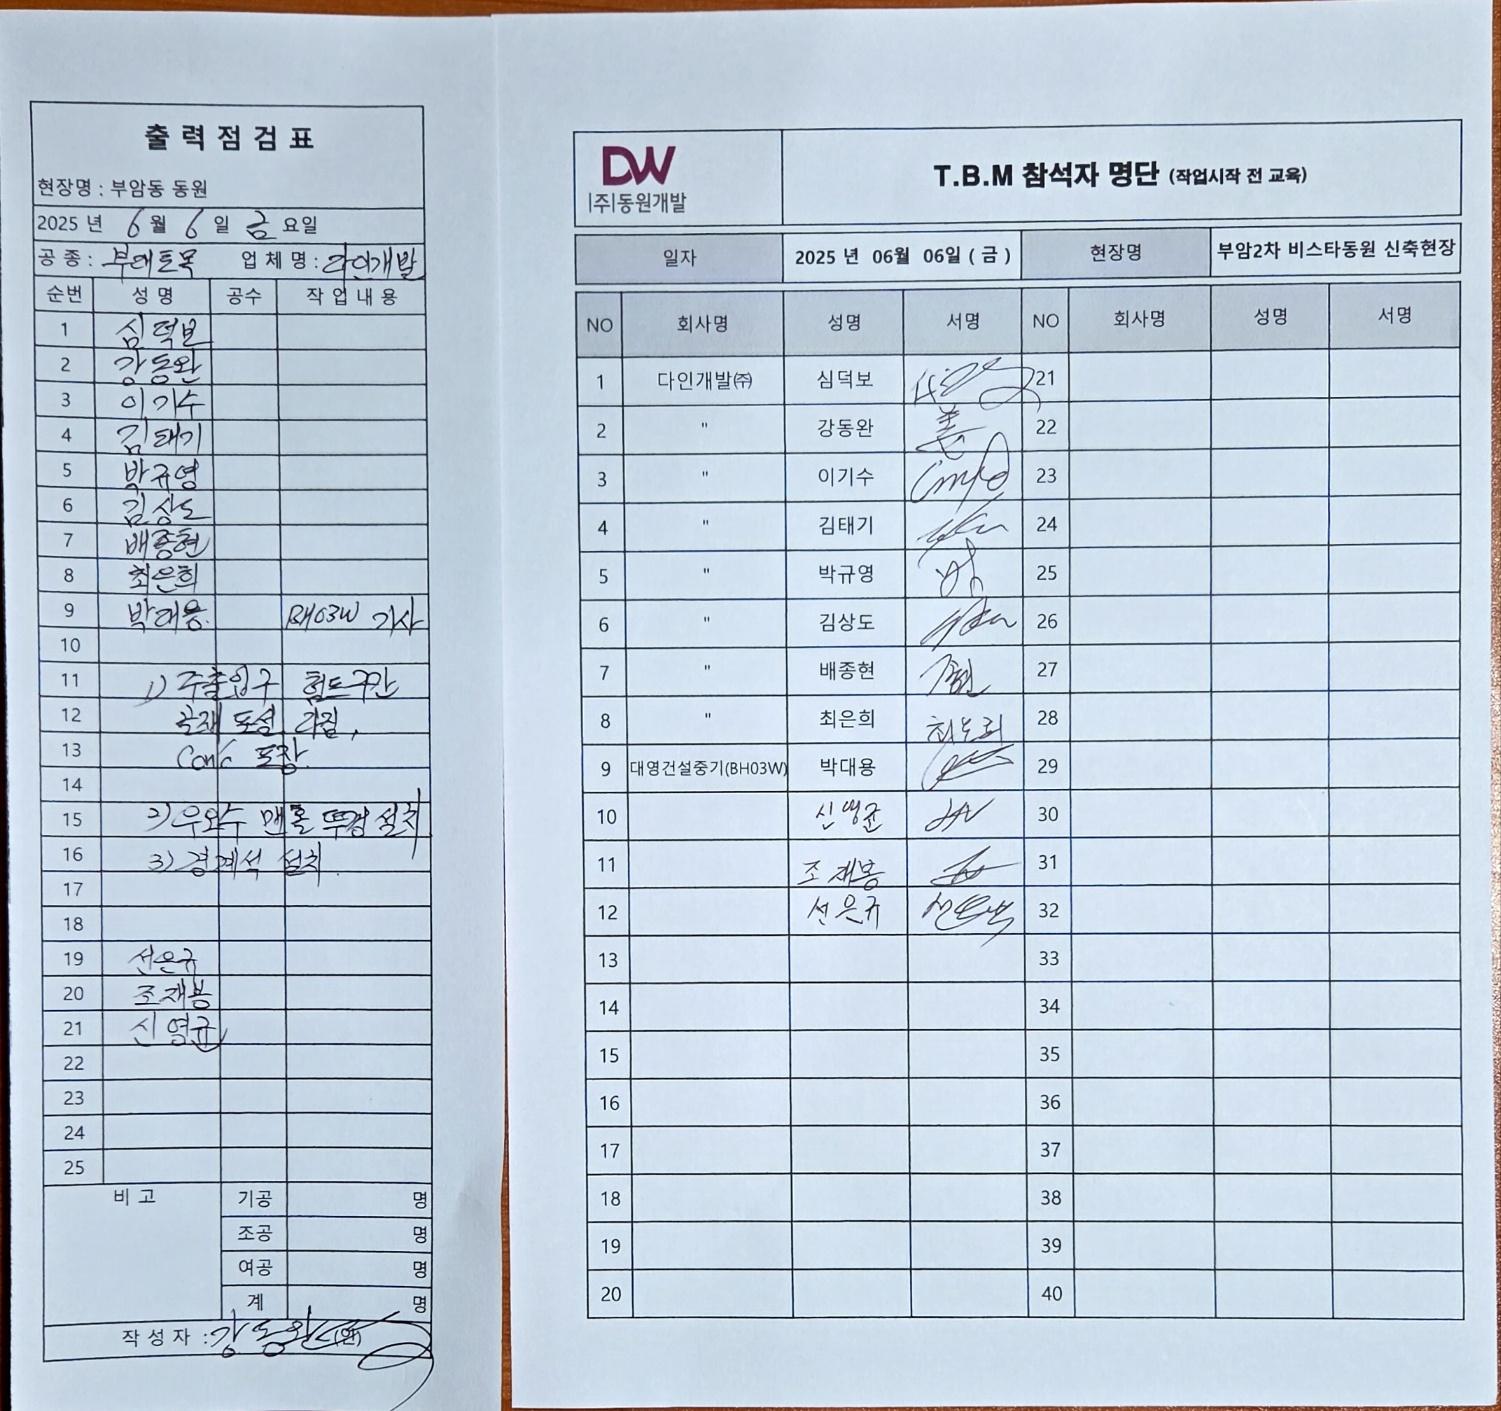 출력점검표
현장명 : 부암동 동원
2025 년 6 월 6 일 금 요일
공 종 : 부대토목 업 체 명 : 다인개발
순번 성 명 공수 작 업 내 용
1 심덕보
2 강동완
3 이기수
4 김태기
5 박규영
6 김상도
7 배종현
8 최은희
9 박대용 BH03W 기사
10
11 1) 주출입구 험프구간
12 골재 포설 다짐,
13 Con'c 포장
14
15 2) 우오수 맨홀 뚜껑 설치
16 3) 경계석 설치
17
18
19 선은규
20 조재봉
21 신영균
22
23
24
25
비 고 기공 명
조공 명
여공 명
계 명
작 성 자 : 강동완 (인)
DW
(주)동원개발
T.B.M 참석자 명단 (작업시작 전 교육)
일자 2025 년 06월 06일 ( 금 ) 현장명 부암2차 비스타동원 신축현장
NO 회사명 성명 서명 NO 회사명 성명 서명
1 다인개발㈜ 심덕보 21
2 " 강동완 姜 22
3 " 이기수 23
4 " 김태기 24
5 " 박규영 박 25
6 " 김상도 26
7 " 배종현 27
8 " 최은희 최은희 28
9 대영건설중기(BH03W) 박대용 29
10 신영균 30
11 조재봉 31
12 선은규 32
13 33
14 34
15 35
16 36
17 37
18 38
19 39
20 40